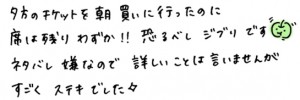 夕方のチケットを朝買いに行ったのに
席は残りわずか!! 恐るべし ジブリ です
ネタバレ 嫌なので 詳しいことは言いませんが
すごく ステキ でした☆